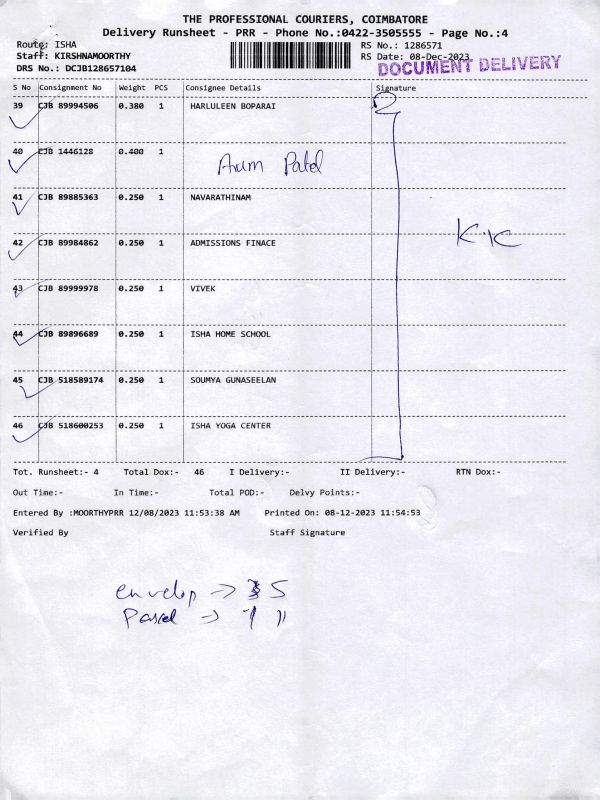 THE PROFESSIONAL COURIERS, COIMBATORE
Delivery Runsheet - PRR - Phone No.:0422-3505555 - Page No.:4
Route: ISHA RS No.: 1286571
Staff: KIRSHNAMOORTHY RS Date: 08-Dec-2023
DRS No.: DCJB128657104 DOCUMENT DELIVERY
S No Consignment No Weight PCS Consignee Details Signature
39 CJB 89994506 0.380 1 HARLULEEN BOPARAI
40 CJB 1446128 0.400 1 Arum Patel
41 CJB 89885363 0.250 1 NAVARATHINAM
42 CJB 89984862 0.250 1 ADMISSIONS FINACE K.K
43 CJB 89999978 0.250 1 VIVEK
44 CJB 89896689 0.250 1 ISHA HOME SCHOOL
45 CJB 518589174 0.250 1 SOUMYA GUNASEELAN
46 CJB 518600253 0.250 1 ISHA YOGA CENTER
Tot. Runsheet:- 4 Total Dox:- 46 I Delivery:- II Delivery:- RTN Dox:-
Out Time:- In Time:- Total POD:- Delvy Points:-
Entered By :MOORTHYPRR 12/08/2023 11:53:38 AM Printed On: 08-12-2023 11:54:53
Verified By Staff Signature
envelop → 5
Parcel →